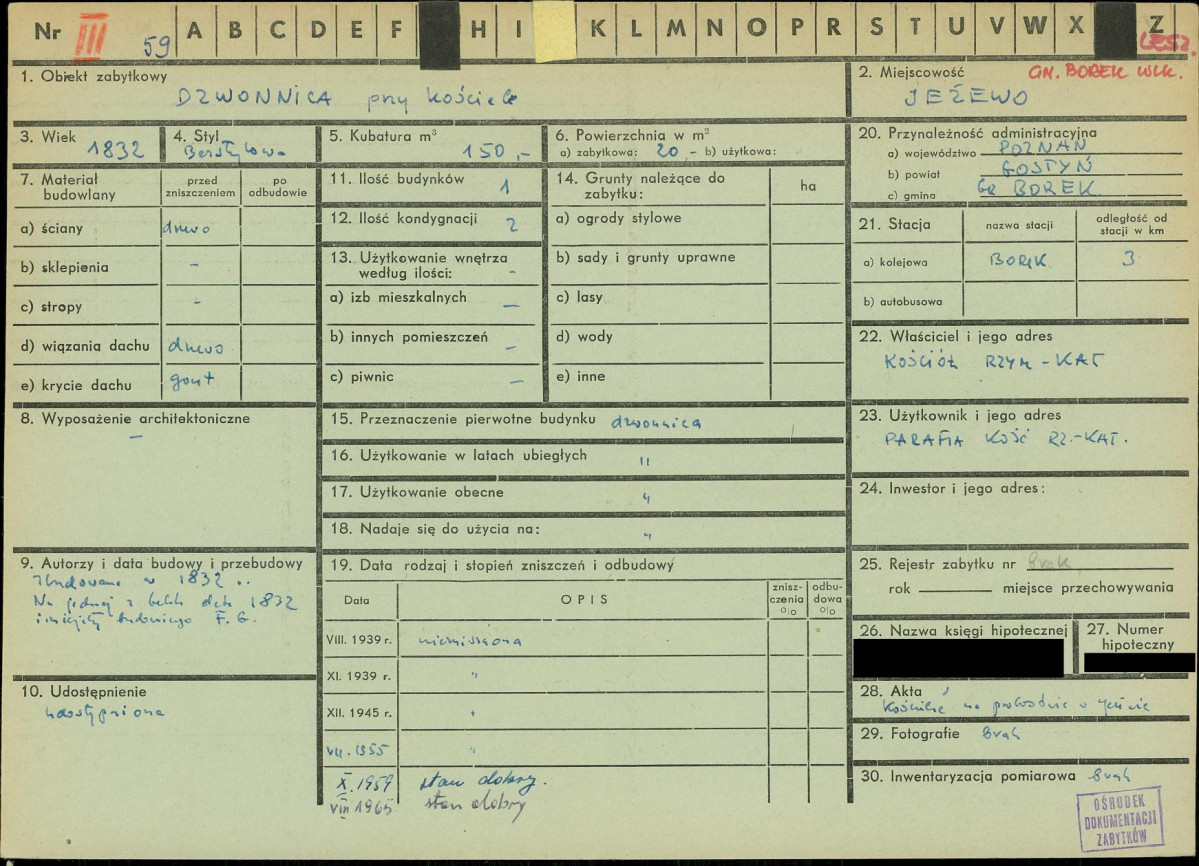 Nr III 59 A B C D E F H I K L M N O P R S T U V W X Z
LESZ.
1. Obiekt zabytkowy
DZWONNICA przy kościele
2. Miejscowość GM. BOREK WLK.
JEŻEWO
3. Wiek 1832
4. Styl Bezstylowa
5. Kubatura m³ 150,-
6. Powierzchnia w m²
a) zabytkowa: 20,- b) użytkowa:
7. Materiał budowlany
przed zniszczeniem
po odbudowie
a) ściany drzewo
b) sklepienia -
c) stropy -
d) wiązania dachu drzewo
e) krycie dachu gont
8. Wyposażenie architektoniczne
-
9. Autorzy i data budowy i przebudowy
Zbudowana w 1832 r.
Na jednej z belek data 1832
i inicjały budowniczego F. G.
10. Udostępnienie
udostępniona
11. Ilość budynków 1
12. Ilość kondygnacji 2
13. Użytkowanie wnętrza
według ilości: -
a) izb mieszkalnych -
b) innych pomieszczeń -
c) piwnic -
14. Grunty należące do
zabytku:
ha
a) ogrody stylowe
b) sady i grunty uprawne
c) lasy
d) wody
e) inne
15. Przeznaczenie pierwotne budynku dzwonnica
16. Użytkowanie w latach ubiegłych "
17. Użytkowanie obecne "
18. Nadaje się do użycia na: "
19. Data rodzaj i stopień zniszczeń i odbudowy
Data
OPIS
znisz-
czenia
%
odbu-
dowa
%
VIII. 1939 r. niezniszczona
XI. 1939 r. "
XII. 1945 r. "
VII. 1955 "
X. 1959 stan dobry.
VIII 1965 stan dobry
20. Przynależność administracyjna
a) województwo POZNAŃ
b) powiat GOSTYŃ
c) gmina BOREK
21. Stacja
nazwa stacji
odległość od
stacji w km
a) kolejowa BOREK 3
b) autobusowa
22. Właściciel i jego adres
KOŚCIÓŁ RZYM-KAT
23. Użytkownik i jego adres
PARAFIA KOŚC RZ.-KAT.
24. Inwestor i jego adres:
25. Rejestr zabytku nr Brak
rok miejsce przechowywania
26. Nazwa księgi hipotecznej
27. Numer
hipoteczny
28. Akta
Kościelne na probostwie w
29. Fotografie Brak
30. Inwentaryzacja pomiarowa Brak
OŚRODEK
DOKUMENTACJI
ZABYTKÓW